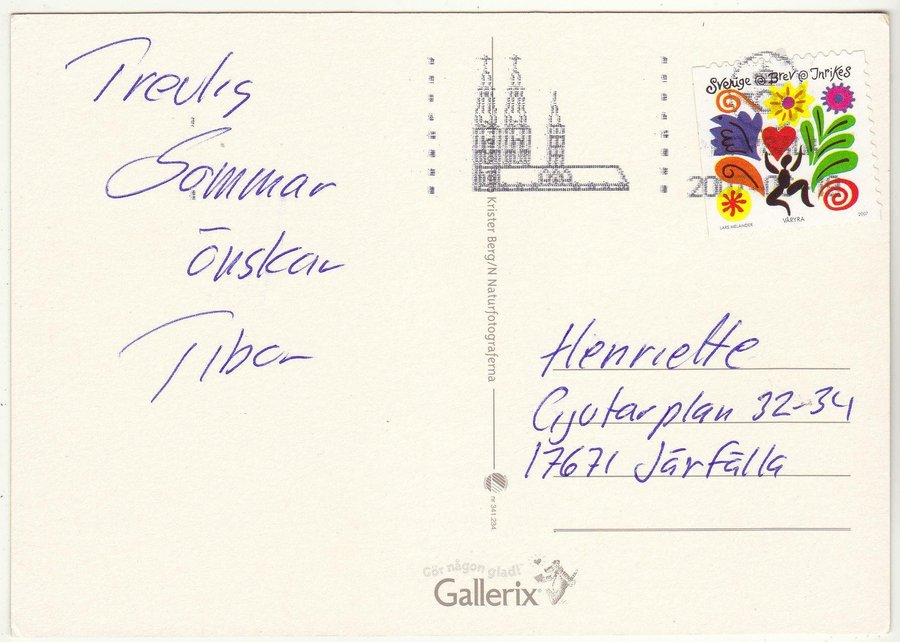 Trevlig
Sommar
önskar
Tibor
Sverige Brev Inrikes
LARS MELANDER
VÅRYRA
2007
Krister Berg/N Naturfotograferna
nr 341.234
Henriette
Gjutarplan 32-34
17671 Järfälla
Gör någon glad!
Gallerix